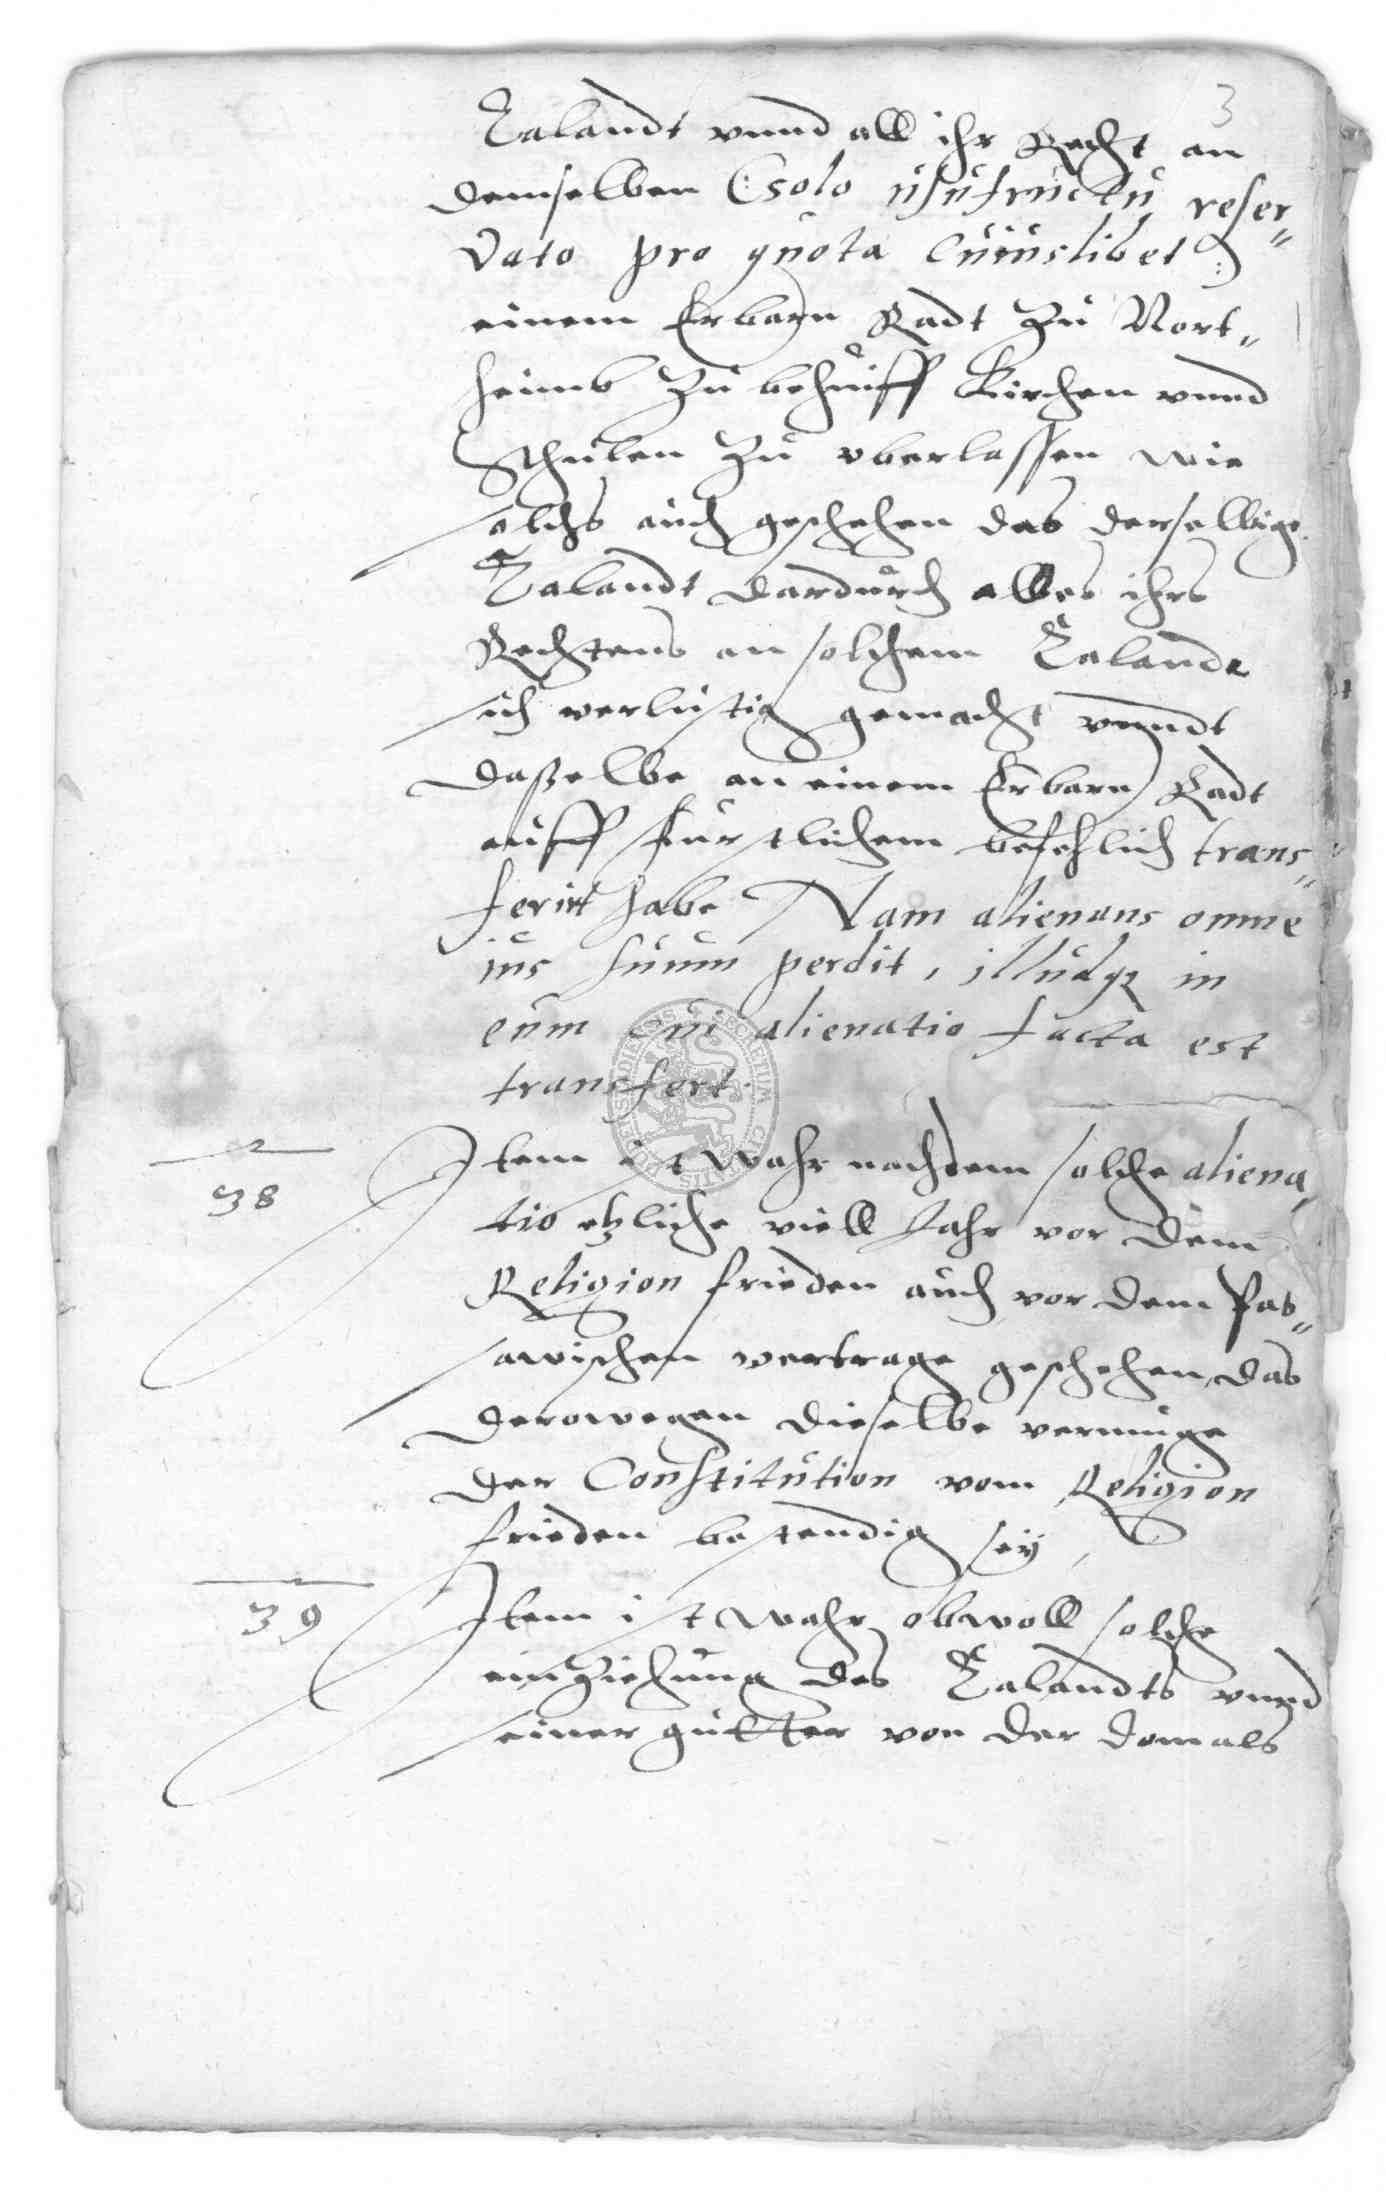 3
Calandt vnnd all ihr Recht an
demselben (: solo usufructu reser„
vato pro quota cuiuslibet :)
einem Erbarn Radt zu Nort„
heimb zu behuiff Kirchen vnnd
Schulen zu vberlassen wie
solchs auch geschehen das derselbige
Calandt dardurch alles ihrs
Rechtens an solchem Calande
sich verlustig gemacht vnndt
daßelbe an einem Erbarn Radt
auff furstlichem befehlich trans„
ferirt habe Nam alienans omne
ius suum perdit, illudq; in
eum cui alienatio facta est
transfert.
38
Item ist wahr nachdem solche aliena„
tio etzliche viell Jahr vor dem
Religion frieden auch vor dem Pas„
sawischen vertrage geschehen, das
derowegen dieselbe vermuge
der Constitution vom Religion
frieden bestendig sey,
39
Item ist wahr obwoll solche
einziehung des Calandts vnnd
seiner gutter von der domals